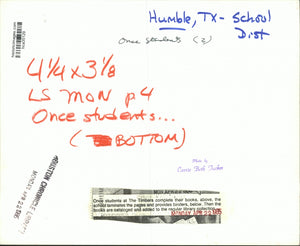 Humble, TX - School
Dist
Once students (2)
4 1/4 x 3 1/8
LS MON p4
Once students...
(BOTTOM)
HOUSTON CHRONICLE LIBRARY
MONDAY APR 22 1985
Photo by
Carrie Beth Tucker
Once students at The Timbers complete their books, above, the
school laminates the pages and provides binders, below. Then the
books are cataloged and added to the regular library collection.
MONDAY APR 22 1985